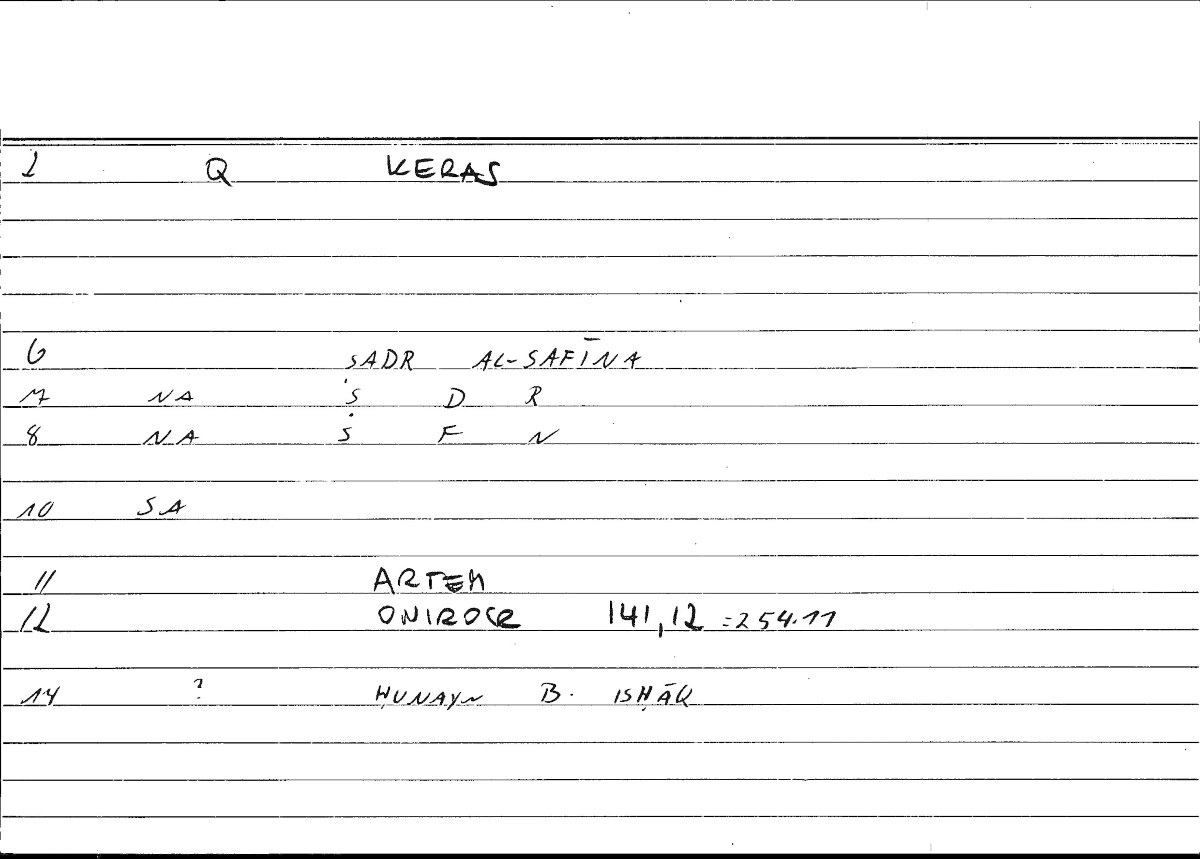 1 Q KERAS
6 ṢADR AL-SAFĪNA
7 NA Ṣ D R
8 NA S F N
10 SA
11 ARTEM
12 ONIROCR 141,12 =254.11
14 ? ḤUNAYN B. ISḤĀQ